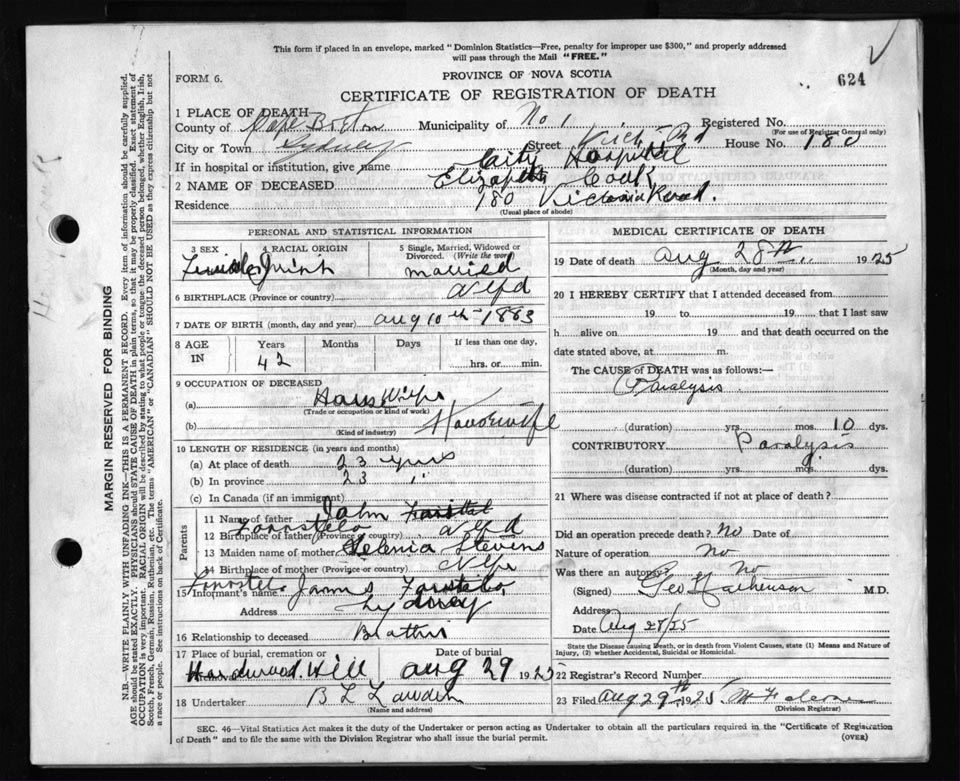 This form if placed in an envelope, marked "Dominion Statistics—Free, penalty for improper use $300," and properly addressed
will pass through the Mail "FREE."
FORM 6.
PROVINCE OF NOVA SCOTIA
624
CERTIFICATE OF REGISTRATION OF DEATH
1 PLACE OF DEATH
County of Cape Breton Municipality of No 1 Registered No.
(For use of Registrar General only)
City or Town Sydney Street House No. 180
If in hospital or institution, give name City Hospital
2 NAME OF DECEASED Elizabeth
Residence 180 Victoria Road.
(Usual place of abode)
PERSONAL AND STATISTICAL INFORMATION
3 SEX 4 RACIAL ORIGIN 5 Single, Married, Widowed or Divorced. (Write the word)
married
6 BIRTHPLACE (Province or country) Nfld
7 DATE OF BIRTH (month, day and year) Aug 10th 1883
8 AGE IN Years Months Days If less than one day,
42 hrs. or min.
9 OCCUPATION OF DECEASED
(a) House Wife
(Trade or occupation or kind of work)
(b) Housewife
(Kind of industry)
10 LENGTH OF RESIDENCE (in years and months)
(a) At place of death 23 years
(b) In province 23 "
(c) In Canada (if an immigrant)
Parents
11 Name of father John
12 Birthplace of father (Province or country) Nfld
13 Maiden name of mother Selenia Stevens
14 Birthplace of mother (Province or country)
15 Informant's name James
Address Sydney
16 Relationship to deceased Brother
17 Place of burial, cremation or Date of burial
Hardwood Hill Aug 29 1925
18 Undertaker
(Name and address)
MEDICAL CERTIFICATE OF DEATH
19 Date of death Aug 28th 1925
(Month, day and year)
20 I HEREBY CERTIFY that I attended deceased from
19 to 19 that I last saw
h alive on 19 and that death occurred on the
date stated above, at m.
The CAUSE of DEATH was as follows:—
Paralysis
(duration) yrs. mos. 10 dys.
CONTRIBUTORY Paralysis
(duration) yrs. mos. dys.
21 Where was disease contracted if not at place of death?
Did an operation precede death? No Date of
Nature of operation No
Was there an autopsy? No
(Signed) M.D.
Address
Date Aug 28/25
State the Disease causing Death, or in death from Violent Causes, state (1) Means and Nature of Injury, (2) whether Accidental, Suicidal or Homicidal.
22 Registrar's Record Number
23 Filed Aug 29th 1925
(Division Registrar)
SEC. 46—Vital Statistics Act makes it the duty of the Undertaker or person acting as Undertaker to obtain all the particulars required in the "Certificate of Registration
of Death" and to file the same with the Division Registrar who shall issue the burial permit.
(OVER)
MARGIN RESERVED FOR BINDING
N.B.—WRITE PLAINLY WITH UNFADING INK—THIS IS A PERMANENT RECORD. Every item of information should be carefully supplied.
AGE should be stated EXACTLY. PHYSICIANS should STATE CAUSE OF DEATH in plain terms, so that it may be properly classified. Exact statement of
OCCUPATION is very important. RACIAL ORIGIN will be described by stating to what people or tongue the deceased person belonged, whether English, Irish,
Scotch, French, German, Russian, Ruthenian, etc. The terms "AMERICAN" or "CANADIAN" SHOULD NOT BE USED as they express citizenship but not
a race or people. See instructions on back of Certificate.